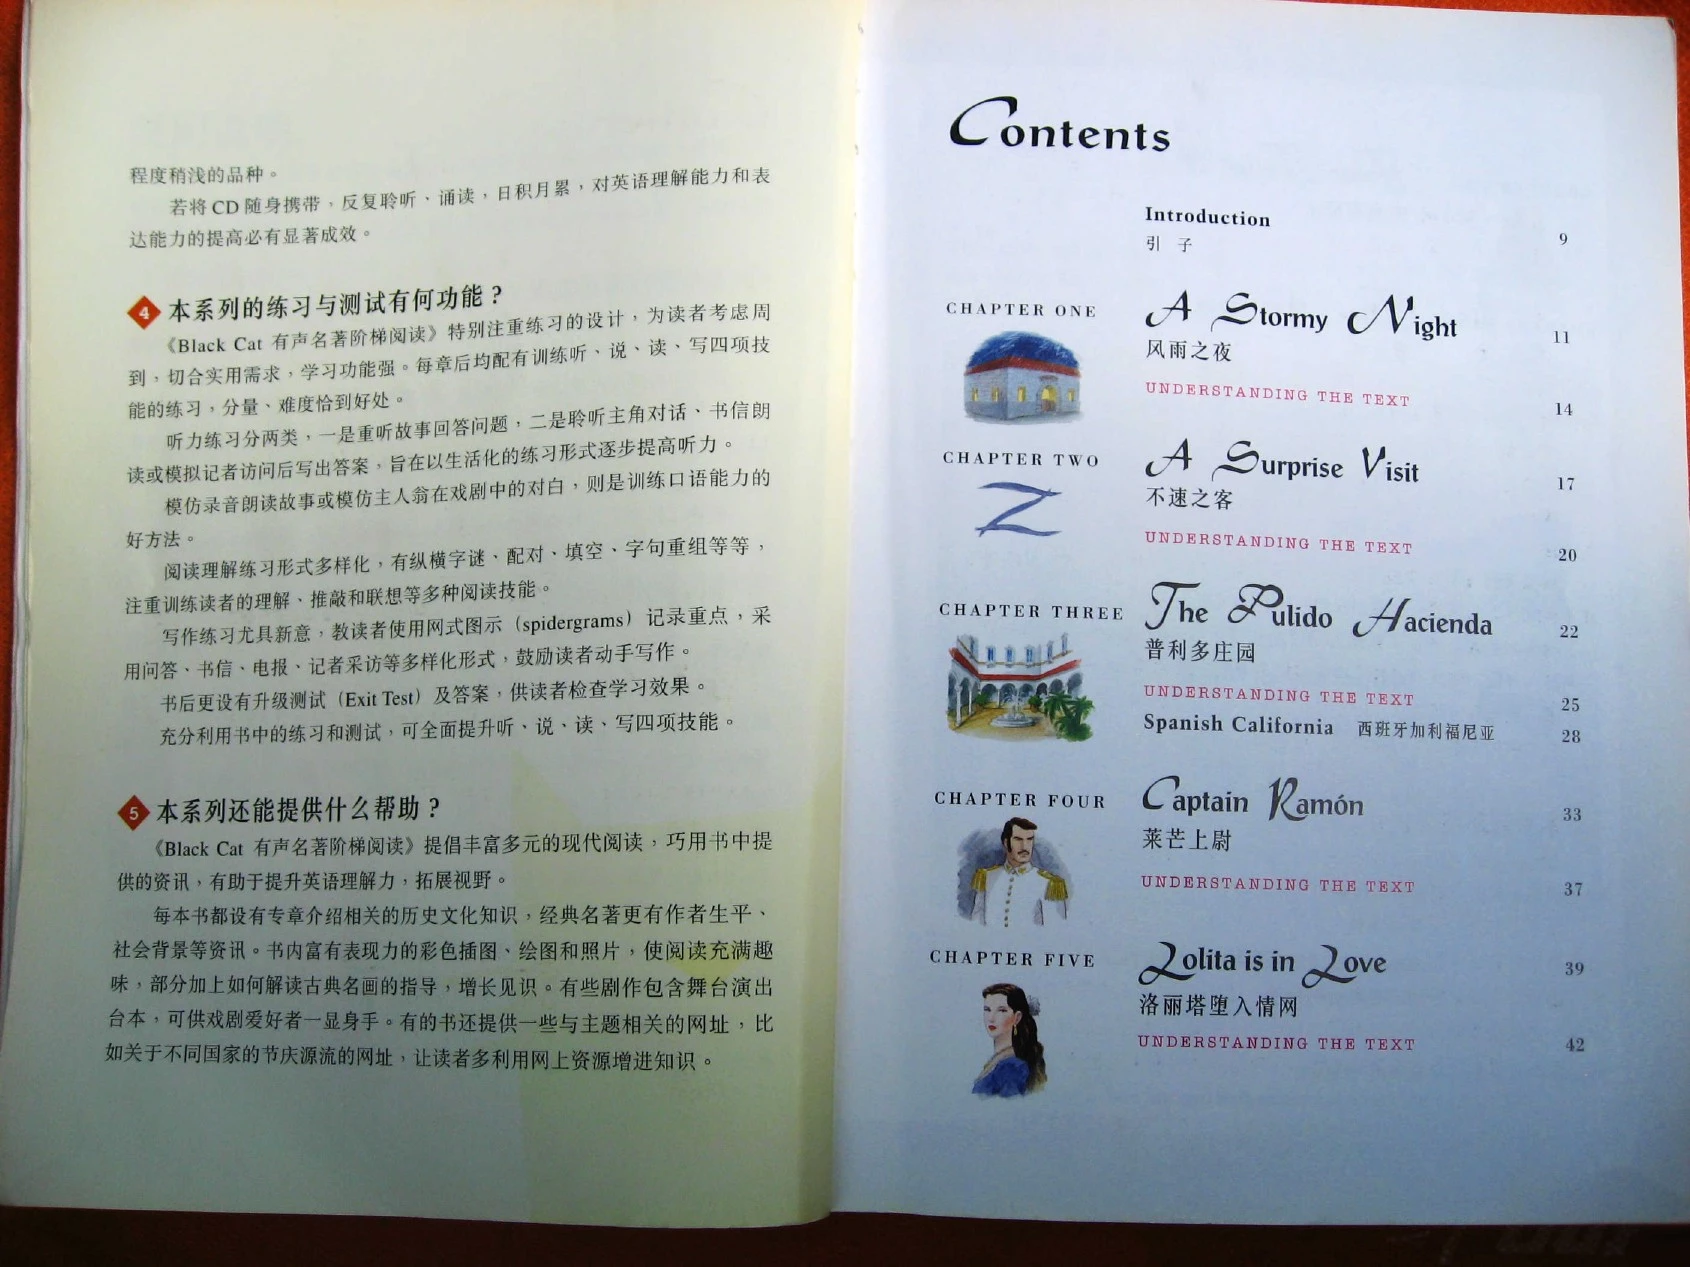 程度稍浅的品种。
若将 CD 随身携带，反复聆听、诵读，日积月累，对英语理解能力和表
达能力的提高必有显著成效。
4 本系列的练习与测试有何功能？
《Black Cat 有声名著阶梯阅读》特别注重练习的设计，为读者考虑周
到，切合实用需求，学习功能强。每章后均配有训练听、说、读、写四项技
能的练习，分量、难度恰到好处。
听力练习分两类，一是重听故事回答问题，二是聆听主角对话、书信朗
读或模拟记者访问后写出答案，旨在以生活化的练习形式逐步提高听力。
模仿录音朗读故事或模仿主人翁在戏剧中的对白，则是训练口语能力的
好方法。
阅读理解练习形式多样化，有纵横字谜、配对、填空、字句重组等等，
注重训练读者的理解、推敲和联想等多种阅读技能。
写作练习尤具新意，教读者使用网式图示（spidergrams）记录重点，采
用问答、书信、电报、记者采访等多样化形式，鼓励读者动手写作。
书后更设有升级测试（Exit Test）及答案，供读者检查学习效果。
充分利用书中的练习和测试，可全面提升听、说、读、写四项技能。
5 本系列还能提供什么帮助？
《Black Cat 有声名著阶梯阅读》提倡丰富多元的现代阅读，巧用书中提
供的资讯，有助于提升英语理解力，拓展视野。
每本书都设有专章介绍相关的历史文化知识，经典名著更有作者生平、
社会背景等资讯。书内富有表现力的彩色插图、绘图和照片，使阅读充满趣
味，部分加上如何解读古典名画的指导，增长见识。有些剧作包含舞台演出
台本，可供戏剧爱好者一显身手。有的书还提供一些与主题相关的网址，比
如关于不同国家的节庆源流的网址，让读者多利用网上资源增进知识。
Contents
Introduction
引 子 9
CHAPTER ONE A Stormy Night 11
风雨之夜
UNDERSTANDING THE TEXT 14
CHAPTER TWO A Surprise Visit 17
不速之客
UNDERSTANDING THE TEXT 20
CHAPTER THREE The Pulido Hacienda 22
普利多庄园
UNDERSTANDING THE TEXT 25
Spanish California 西班牙加利福尼亚 28
CHAPTER FOUR Captain Ramón 33
莱芒上尉
UNDERSTANDING THE TEXT 37
CHAPTER FIVE Lolita is in Love 39
洛丽塔堕入情网
UNDERSTANDING THE TEXT 42